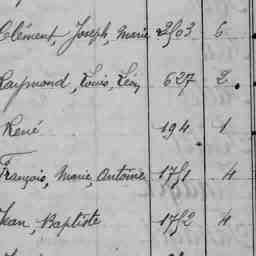 Clément, Joseph, Marie 2503 6
Raymond, Louis, Léon 627 2.
René 194. 1
François, Marie, Antoine 1751 4
Jean, Baptiste 1752 4